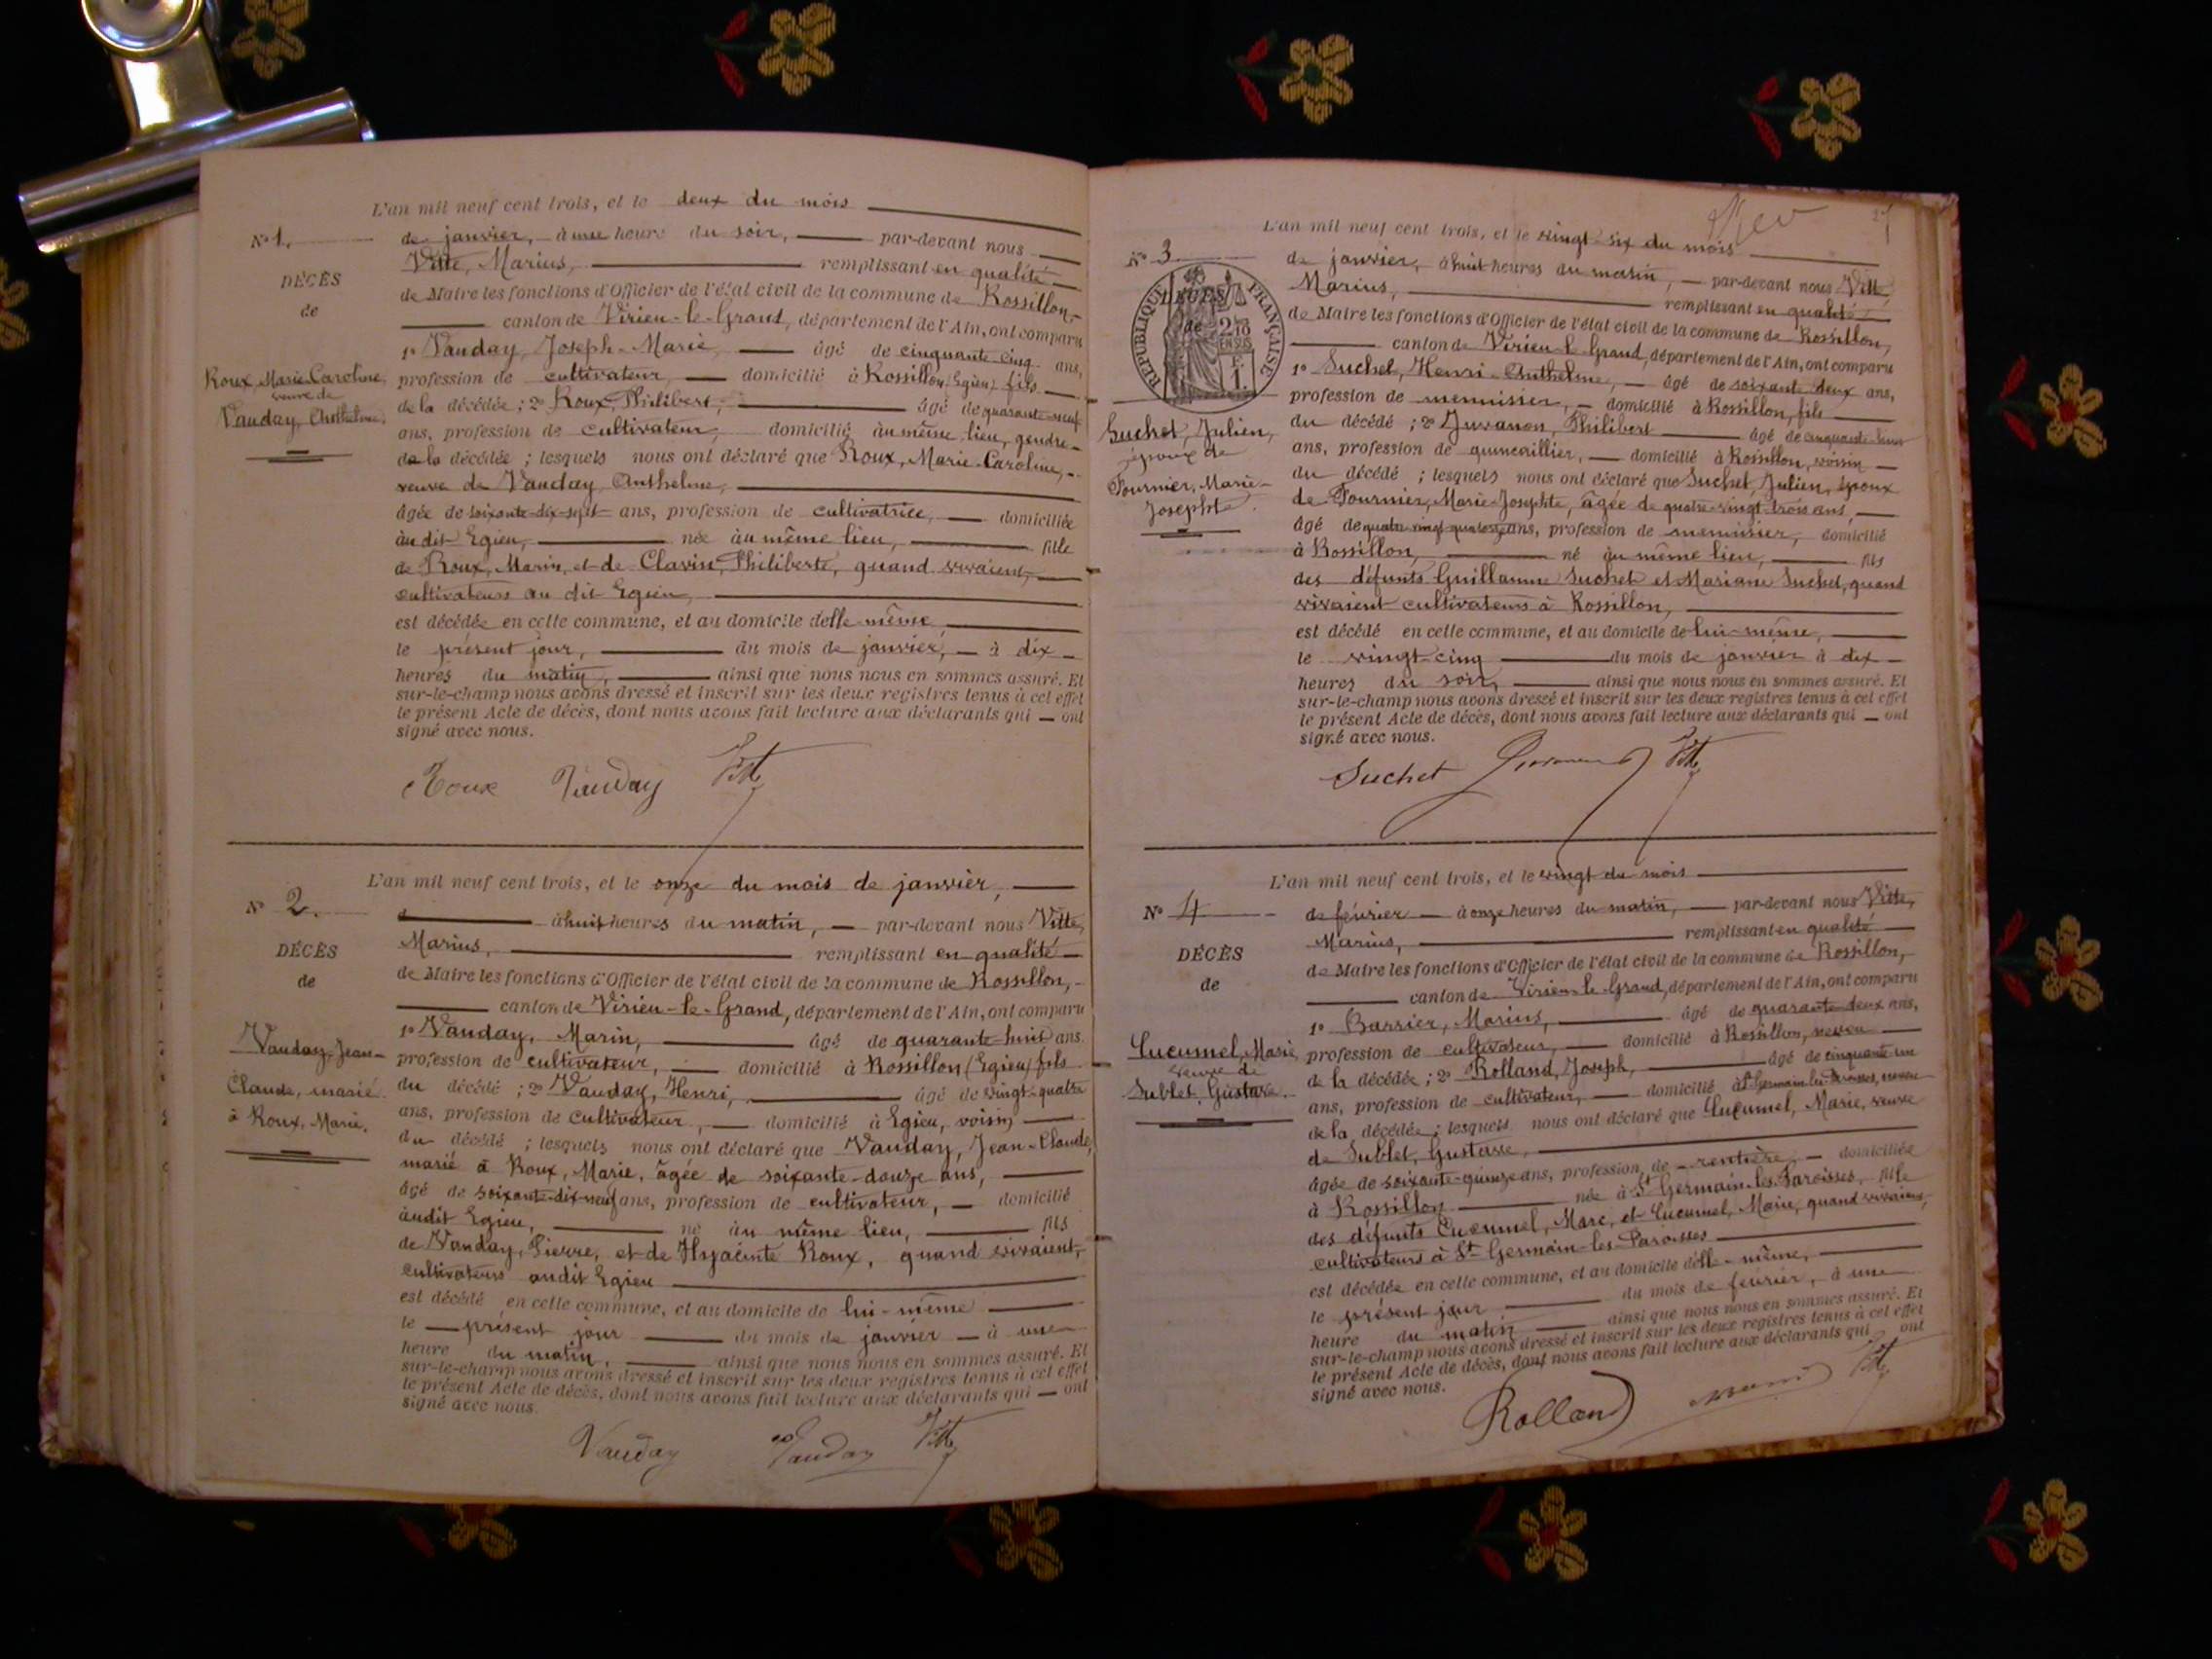 L'an mil neuf cent trois, et le deux du mois
Nº 1.
de janvier, à une heure du soir, par-devant nous
Vitte, Marius, remplissant en qualité
DÉCÈS
de Maire les fonctions d'Officier de l'état civil de la commune de Rossillon,
de
canton de Virieu-le-Grand, département de l'Ain, ont comparu
1º Vauday, Joseph-Marie, âgé de cinquante-cinq ans,
Roux, Marie-Caroline,
veuve de
Vauday, Anthelme,
profession de cultivateur, domicilié à Rossillon (Egieu) fils
de la décédée ; 2º Roux, Philibert, âgé de quarante-neuf
ans, profession de cultivateur, domicilié au même lieu, gendre
de la décédée ; lesquels nous ont déclaré que Roux, Marie-Caroline,
veuve de Vauday, Anthelme,
âgée de soixante-dix-sept ans, profession de cultivatrice, domiciliée
audit Egieu, née au même lieu, fille
de Roux, Marin, et de Clavin, Philiberte, quand vivaient,
cultivateurs au dit Egieu,
est décédée en cette commune, et au domicile d'elle-même,
le présent jour, du mois de janvier, à dix
heures du matin, ainsi que nous nous en sommes assuré. Et
sur-le-champ nous avons dressé et inscrit sur les deux registres tenus à cet effet
le présent Acte de décès, dont nous avons fait lecture aux déclarants qui ont
signé avec nous.
Roux Vauday Vitte
L'an mil neuf cent trois, et le onze du mois de janvier,
Nº 2.
à huit heures du matin, par-devant nous Vitte,
DÉCÈS
Marius, remplissant en qualité
de
de Maire les fonctions d'Officier de l'état civil de la commune de Rossillon,
canton de Virieu-le-Grand, département de l'Ain, ont comparu
Vauday, Jean-
Claude, marié
à Roux, Marie.
1º Vauday, Marin, âgé de quarante-huit ans
profession de cultivateur, domicilié à Rossillon (Egieu) fils
du décédé ; 2º Vauday, Henri, âgé de vingt-quatre
ans, profession de cultivateur, domicilié à Egieu, voisin
du décédé ; lesquels nous ont déclaré que Vauday, Jean-Claude,
marié à Roux, Marie, âgée de soixante-douze ans,
âgé de soixante-dix-neuf ans, profession de cultivateur, domicilié
audit Egieu, né au même lieu, fils
de Vauday, Pierre, et de Hyacinte Roux, quand vivaient,
cultivateurs audit Egieu
est décédé en cette commune, et au domicile de lui-même
le présent jour du mois de janvier à une
heure du matin, ainsi que nous nous en sommes assuré. Et
sur-le-champ nous avons dressé et inscrit sur les deux registres tenus à cet effet
le présent Acte de décès, dont nous avons fait lecture aux déclarants qui ont
signé avec nous.
Vauday Vauday Vitte
L'an mil neuf cent trois, et le vingt-six du mois
Nº 3.
de janvier, à huit heures du matin, par-devant nous Vitte,
Marius, remplissant en qualité
DÉCÈS
de
RÉPUBLIQUE FRANÇAISE
2/10 EN SUS
F.
1.
de Maire les fonctions d'Officier de l'état civil de la commune de Rossillon,
canton de Virieu-le-Grand, département de l'Ain, ont comparu
Suchet, Julien,
époux de
Fournier, Marie-
Josephte.
1º Suchet, Henri-Anthelme, âgé de soixante-deux ans,
profession de menuisier, domicilié à Rossillon, fils
du décédé ; 2º Juvanon, Philibert âgé de
ans, profession de quincaillier, domicilié à Rossillon, voisin
du décédé ; lesquels nous ont déclaré que Suchet, Julien, époux
de Fournier, Marie-Josephte, âgée de quatre-vingt-trois ans,
âgé de quatre-vingt-quatorze ans, profession de menuisier, domicilié
à Rossillon, né au même lieu, fils
des défunts Guillaume Suchet et Mariane Suchet, quand
vivaient cultivateurs à Rossillon,
est décédé en cette commune, et au domicile de lui-même,
le vingt-cinq du mois de janvier à dix
heures du soir, ainsi que nous nous en sommes assuré. Et
sur-le-champ nous avons dressé et inscrit sur les deux registres tenus à cet effet
le présent Acte de décès, dont nous avons fait lecture aux déclarants qui ont
signé avec nous.
Suchet Juvanon Vitte
L'an mil neuf cent trois, et le vingt du mois
Nº 4
de février à onze heures du matin, par-devant nous Vitte,
Marius, remplissant en qualité
DÉCÈS
de Maire les fonctions d'Officier de l'état civil de la commune de Rossillon,
de
canton de Virieu-le-Grand, département de l'Ain, ont comparu
Cucumel, Marie,
veuve de
Sublet, Gustave.
1º Barrier, Marius, âgé de quarante-deux ans,
profession de cultivateur, domicilié à Rossillon, neveu
de la décédée ; 2º Rolland, Joseph, âgé de cinquante-un
ans, profession de cultivateur, domicilié à St Germain-les-Paroisses, neveu
de la décédée ; lesquels nous ont déclaré que Cucumel, Marie, veuve
de Sublet, Gustave,
âgée de soixante-quinze ans, profession de rentière, domiciliée
à Rossillon née à St Germain-les-Paroisses, fille
des défunts Cucumel, Marc, et Cucumel, Marie, quand vivaient,
cultivateurs à St Germain-les-Paroisses
est décédée en cette commune, et au domicile d'elle-même,
le présent jour du mois de février, à une
heure du matin ainsi que nous nous en sommes assuré. Et
sur-le-champ nous avons dressé et inscrit sur les deux registres tenus à cet effet
le présent Acte de décès, dont nous avons fait lecture aux déclarants qui ont
signé avec nous.
Rolland Vitte